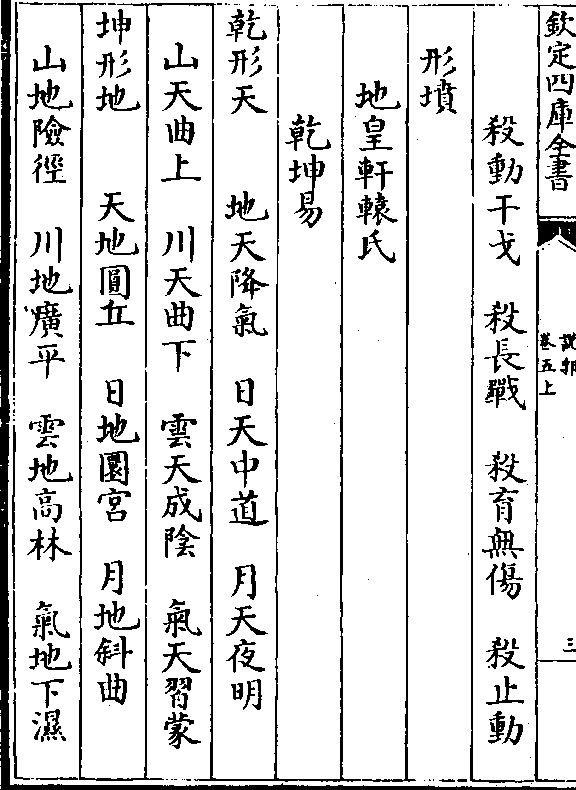 欽定四庫全書
說郛
卷五上
三
殺動干戈 殺長戰 殺育無傷 殺止動
形墳
地皇軒轅氏
乾坤易
乾形天 地天降氣 日天中道 月天夜明
山天曲上 川天曲下 雲天成陰 氣天習蒙
坤形地 天地圓丘 日地圜宮 月地斜曲
山地險徑 川地廣平 雲地高林 氣地下濕